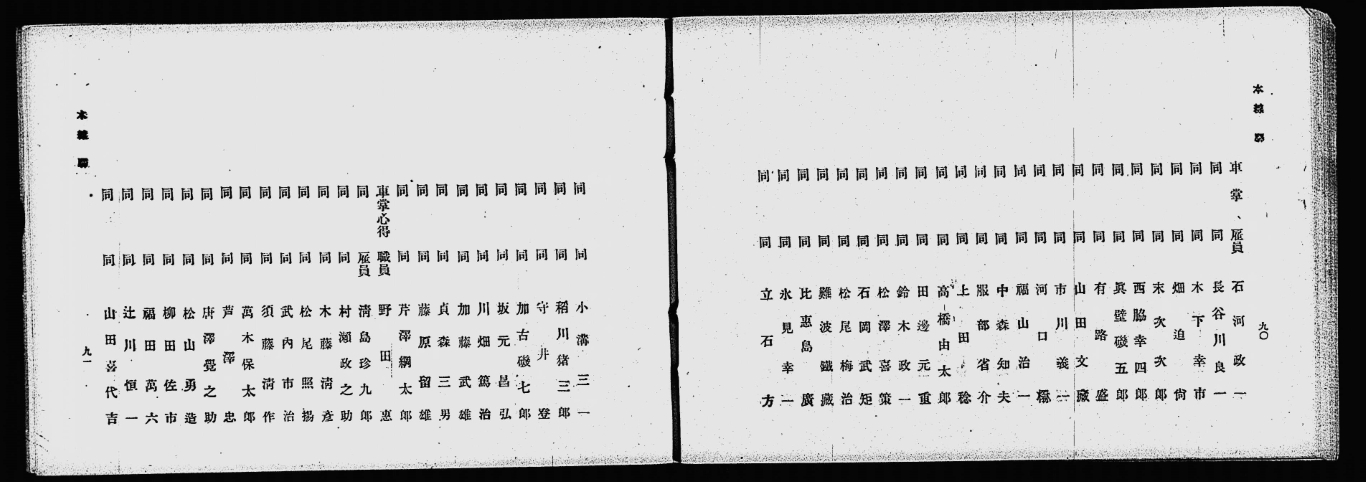 本線
九〇
車掌、雇員 石河政一
同 同 長谷川良一
同 同 木下幸市
同 同 畑迫尙
同 同 末次次郎
同 同 西脇幸四郎
同 同 眞壁磯五郎
同 同 有路盛
同 同 山田文藏
同 同 市川義
同 同 河口穩
同 同 福山治一
同 同 中森知夫
同 同 服部省介
同 同 上田稔
同 同 高橋由太郎
同 同 田邊元重
同 同 鈴木政一
同 同 松澤喜策
同 同 石岡武矩
同 同 松尾梅治
同 同 難波鐵藏
同 同 比惠島廣
同 同 永見幸一
同 同 立石方
同 同 小溝三一
同 同 稻川猪三郎
同 同 守井登
同 同 加古磯七郎
同 同 坂元昌弘
同 同 川畑篤治
同 同 加藤武雄
同 同 貞森三男
同 同 藤原留雄
同 同 芹澤綱太郎
車掌心得 職員 野田惠
同 雇員 淸島珍九郎
同 同 村瀬政之助
同 同 木藤淸彥
同 同 松尾照揚
同 同 武內市治
同 同 須藤淸作
同 同 萬木保太郎
同 同 芦澤忠
同 同 唐澤覺之助
同 同 松山勇造
同 同 柳田佐市
同 同 福田萬六
同 同 辻川恒一
同 同 山田喜代吉
本線
九一